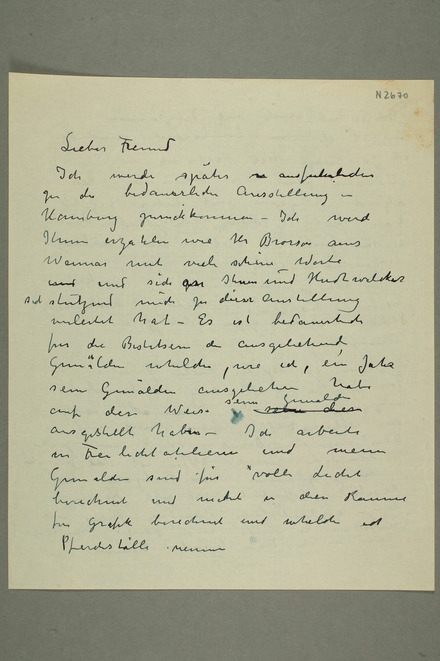 N2670
Lieber Freund
Ich werde später ausführlicher
zu der bedauerlichen Ausstellung in
Hamburg zurückkommen – Ich werd
Ihnen erzählen wie Hr Broroso aus
Weimar mit viel schöne Worte
und sich Ihnen und Hudtwalcker
stützend mich zu dieser Ausstellung
verleitet hat – Es ist bedauerlich
für die Besitzern der ausgeliehene
Gemälden welche, wie ich, ein Jahr
sein Gemälden ausgeliehen habe
auf der Weise sein Gemälde
ausgestellt haben – Ich arbeite
in Freilichtatelieren und meine
Gemälden sind für "volle Licht
berechnet und nicht in den Räumen
für Grafik berechnet und welche ich
Pferdeställe nennen